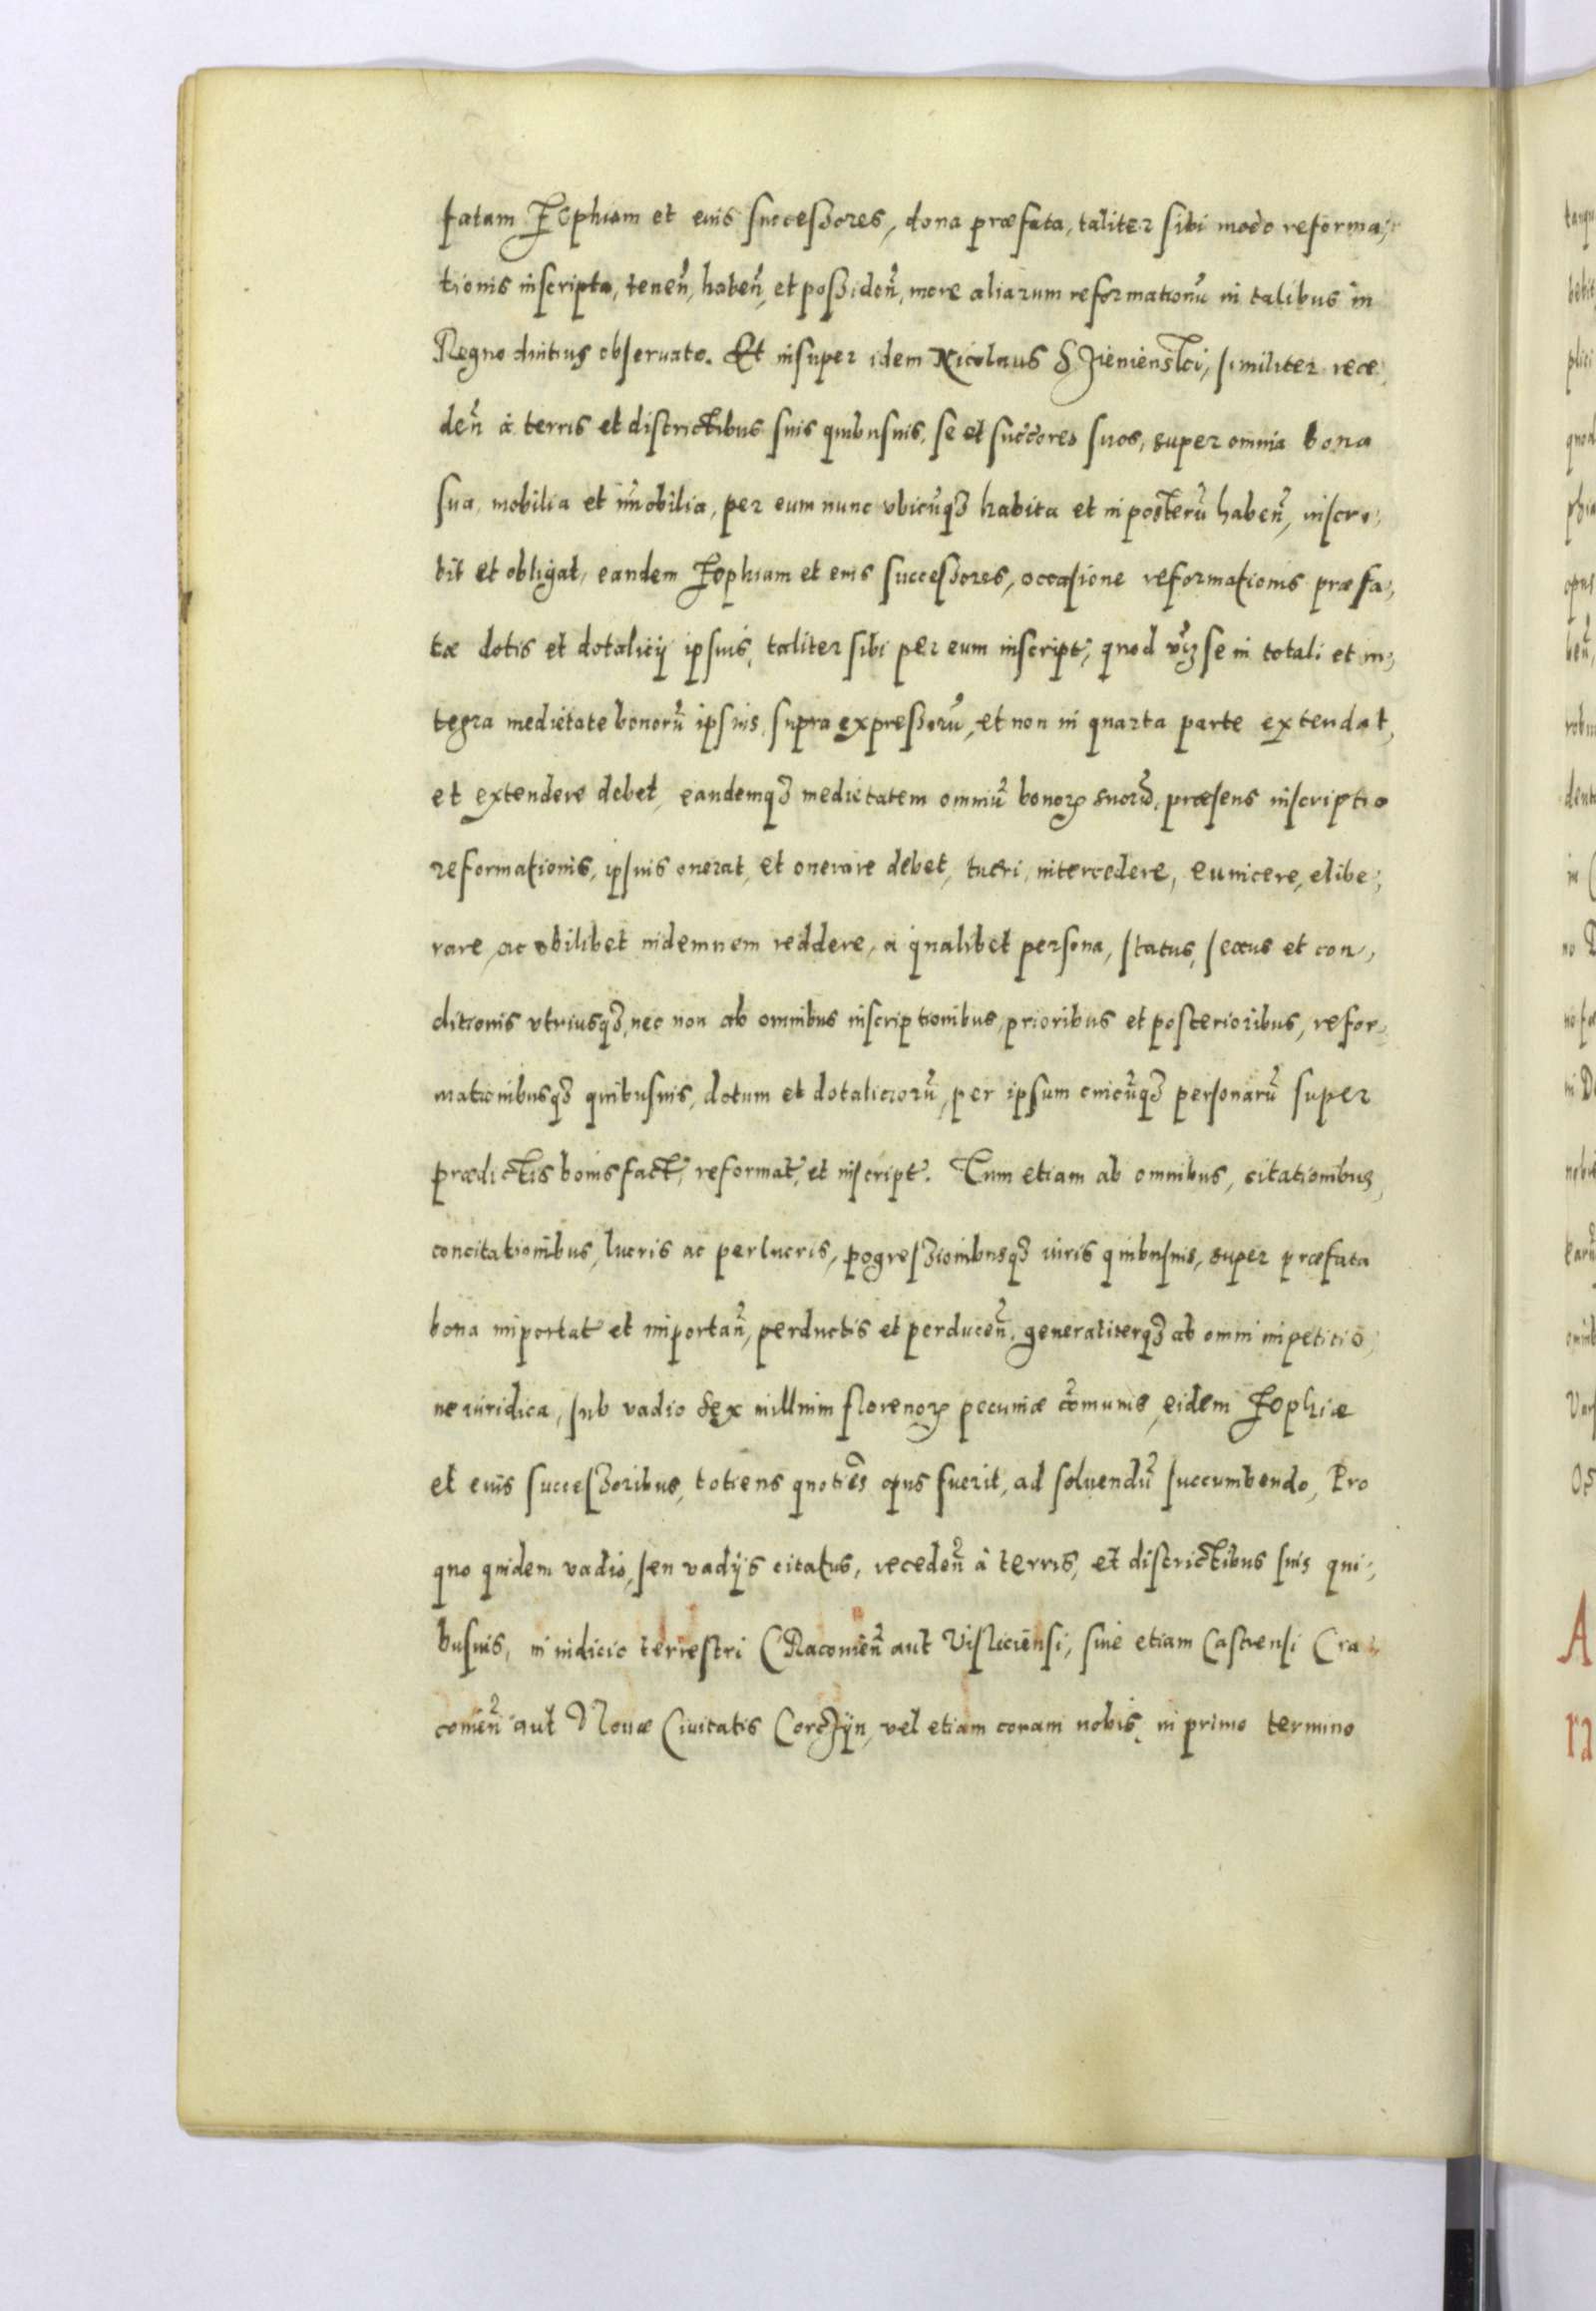 fatam Zophiam et eius successores, dona præfata, taliter sibi modo reforma,
tionis inscripta, tenen̄, haben̄, et possiden̄, more aliarum reformationū in talibus in
Regno diutius obseruato. Et insuper idem Nicolaus Szienienski, similiter rece,
den̄ à terris et districtibus suis quibusuis, se et succ̄ores suos, super omnia bona
sua, mobilia et im̄obilia, per eum nunc vbicūq3 habita et in posterū haben̄, inscri,
bit et obligat, eandem Zophiam et eius successores, occasione reformationis præfa,
tæ dotis et dotalicij ipsius, taliter sibi per eum inscript, quod vz̄ se in totali et in,
tegra medietate bonorū ipsius, supra expressorū, et non in quarta parte extendat,
et extendere debet, eandemq3 medietatem omniū bonoꝝ suorū, præsens inscriptio
reformationis, ipsius onerat, et onerare debet, tueri, intercedere, euincere, elibe,
rare, ac vbilibet indemnem reddere, a qualibet persona, status, sexus et con,
ditionis vtriusq3, nec non ab omnibus inscriptionibus, prioribus et posterioribus, refor,
mationibusq3 quibusuis, dotum et dotaliciorū, per ipsum cuicūq3 personarū super
prædictis bonis fact, reformat, et inscript. Tum etiam ab omnibus, citationibus,
concitationibus, lucris ac perlucris, pogressionibusq3 iuris quibusuis, super præfata
bona importat et importan̄, perductis et perducen̄, generaliterq3 ab omni impetitio,
ne iuridica, sub vadio sex millium florenoꝝ pecuniæ com̄unis, eidem Zophiæ
et eius successoribus, totiens quotiēs opus fuerit, ad soluendū succumbendo, Pro
quo quidem vadio, seu vadijs citatus, receden̄ à terris, et districtibus suis qui,
busuis, in iudicio terrestri CRacouien̄ aut Visliciensi, siue etiam Castrensi Cra,
couien̄ aut Nouæ Ciuitatis Corczÿn, vel etiam coram nobis, in primo termino